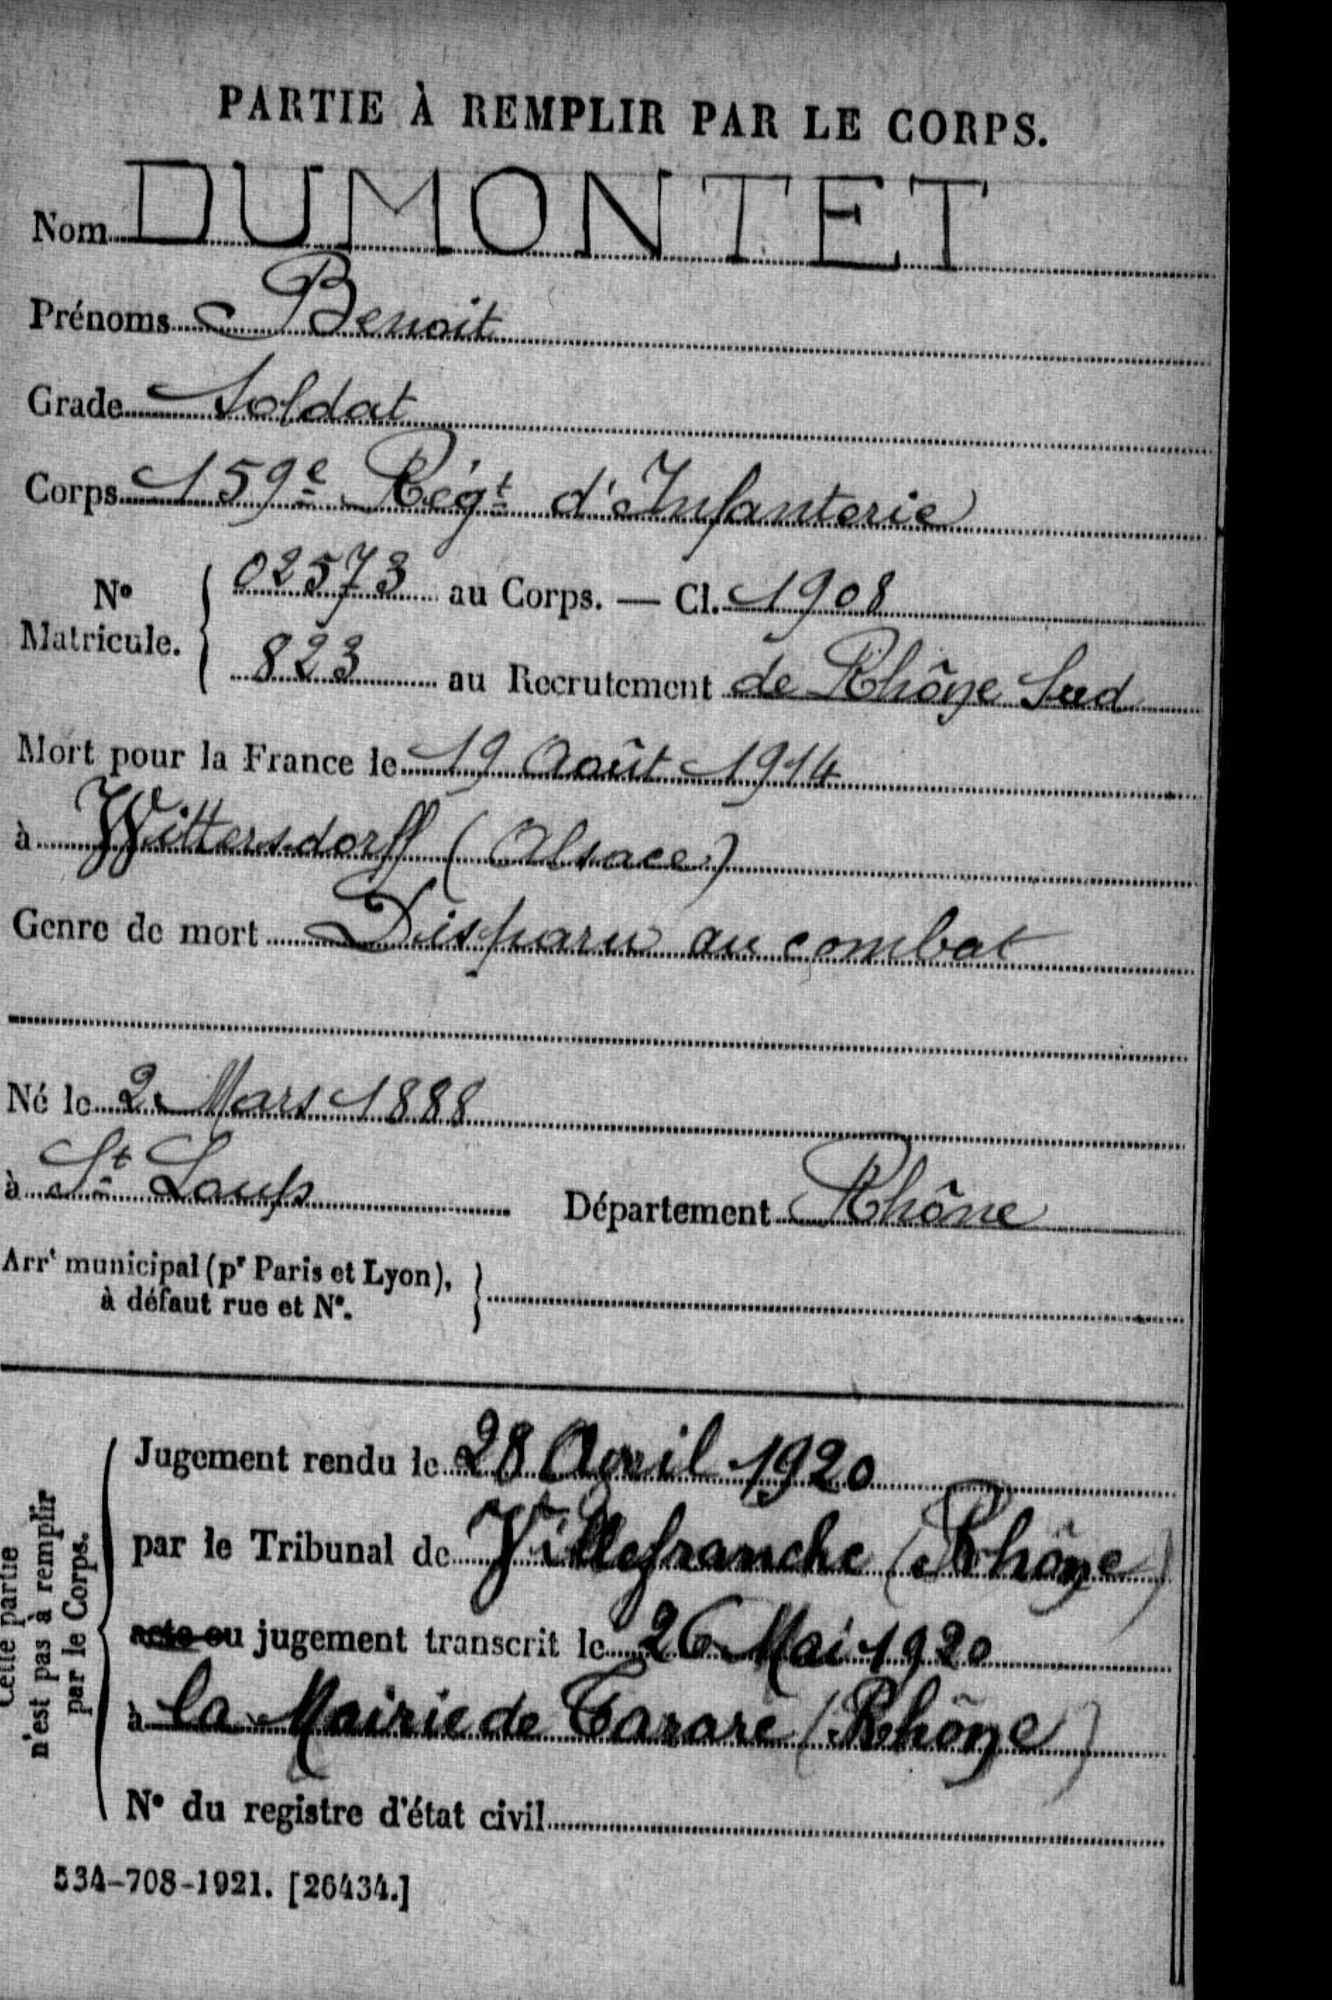 PARTIE À REMPLIR PAR LE CORPS.
Nom DUMONTET
Prénoms Benoit
Grade Soldat
Corps 159e Régt d'Infanterie
No Matricule. { 02573 au Corps. — Cl. 1908
823 au Recrutement de Rhône Sud
Mort pour la France le 19 Août 1914
à Wittersdorff (Alsace)
Genre de mort Disparu au combat
Né le 2 Mars 1888
à St Loup Département Rhône
Arrt municipal (pr Paris et Lyon), à défaut rue et No. }
Cette partie n'est pas à remplir par le Corps.
Jugement rendu le 28 Avril 1920
par le Tribunal de Villefranche (Rhône)
acte ou jugement transcrit le 26 Mai 1920
à la Mairie de Tarare (Rhône)
No du registre d'état civil
534-708-1921. [26434.]